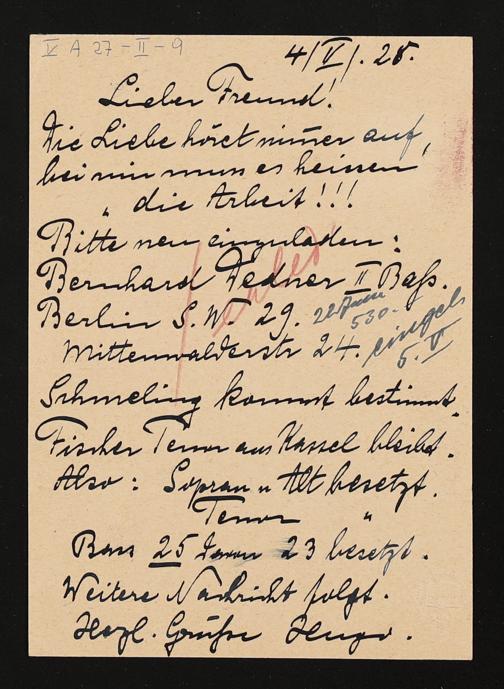 V A 27-II-9
4/V/. 28.
Lieber Freund!
Die Liebe höret nimer auf,
bei mir muss es heissen
„ die Arbeit!!!
Bitte neu einzuladen:
Bernhard Dedner II Bass.
Berlin S.W. 29.
Mittenwalderstr 24.
22 Juni
530.-
eingel
5.V
Schmeling kommt bestimmt.
Fischer Tenor aus Kassel bleibt.
Also: Sopran u Alt besetzt.
Tenor "
Bass 25 davon 23 besetzt.
Weitere Nachricht folgt.
Herzl. Grüsse Hugo.